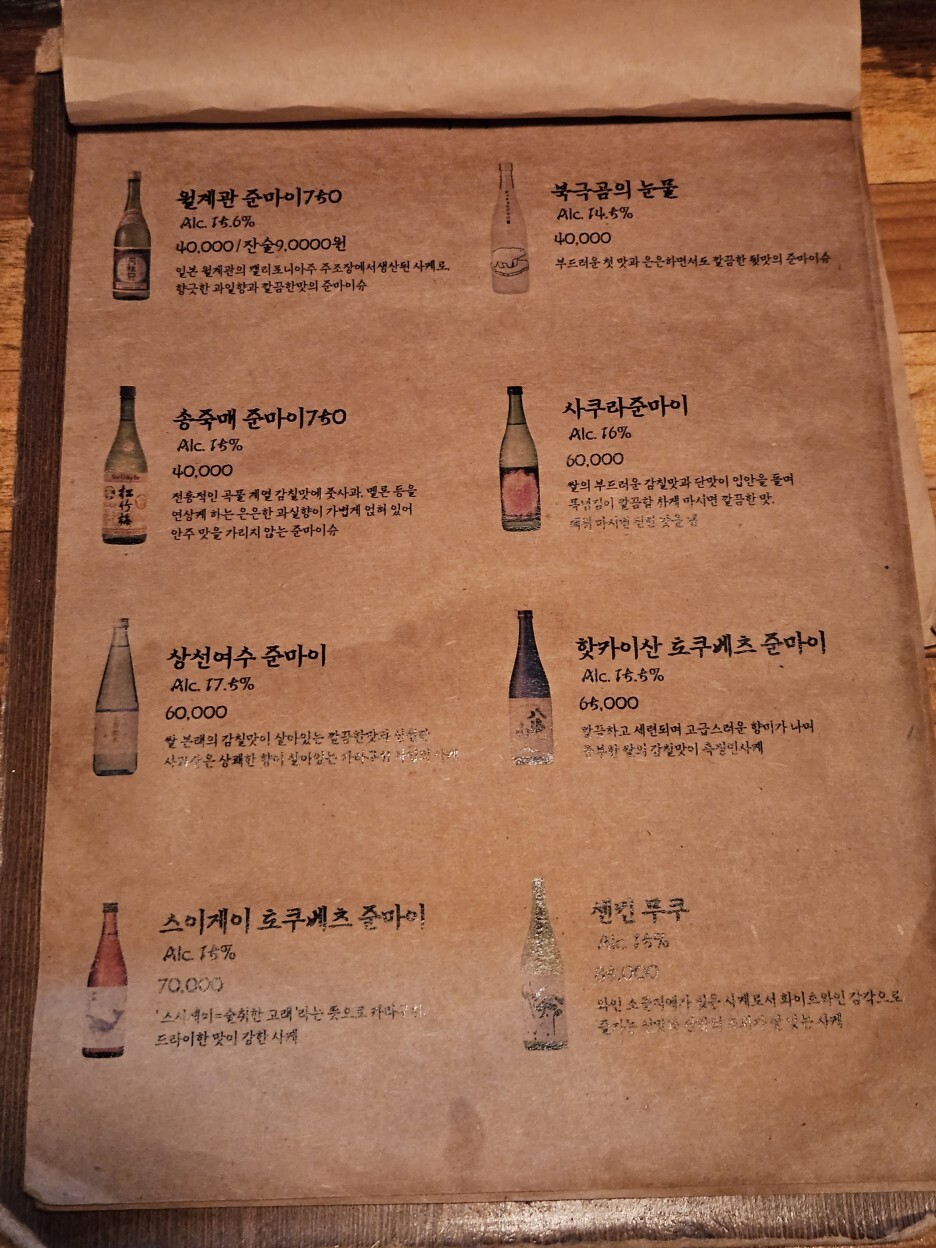 월계관 준마이750
Alc. 15.6%
40,000/잔술9,0000원
일본 월계관의 캘리포니아주 주조장에서생산된 사케로,
향긋한 과일향과 깔끔한맛의 준마이슈
북극곰의 눈물
Alc. 14.5%
40,000
부드러운 첫 맛과 은은하면서도 깔끔한 뒷맛의 준마이슈
송죽매 준마이750
Alc. 15%
40,000
전통적인 곡물 계열 감칠맛에 풋사과, 멜론 등을
연상케 하는 은은한 과실향이 가볍게 얹혀 있어
안주 맛을 가리지 않는 준마이슈
松竹梅
사쿠라준마이
Alc. 16%
60,000
쌀의 부드러운 감칠맛과 단맛이 입안을 돌며
목넘김이 깔끔함 차게 마시면 깔끔한 맛,
마시면
상선여수 준마이
Alc. 17.5%
60,000
쌀 본래의 감칠맛이 살아있는 깔끔한맛과
상쾌한 향이 살아있는
핫카이산 토쿠베츠 준마이
Alc. 15.5%
65,000
깔끔하고 세련되며 고급스러운 향미가 나며
풍부한 쌀의 감칠맛이 특징인사케
八海山
스이게이 토쿠베츠 준마이
Alc. 15%
70,000
'스이게이=술취한 고래'라는 뜻으로
드라이한 맛이 강한 사케
센킨 무쿠
Alc. 15%
와인 소믈리에가 빚은 사케로서 화이트와인 감각으로
즐기는 사케